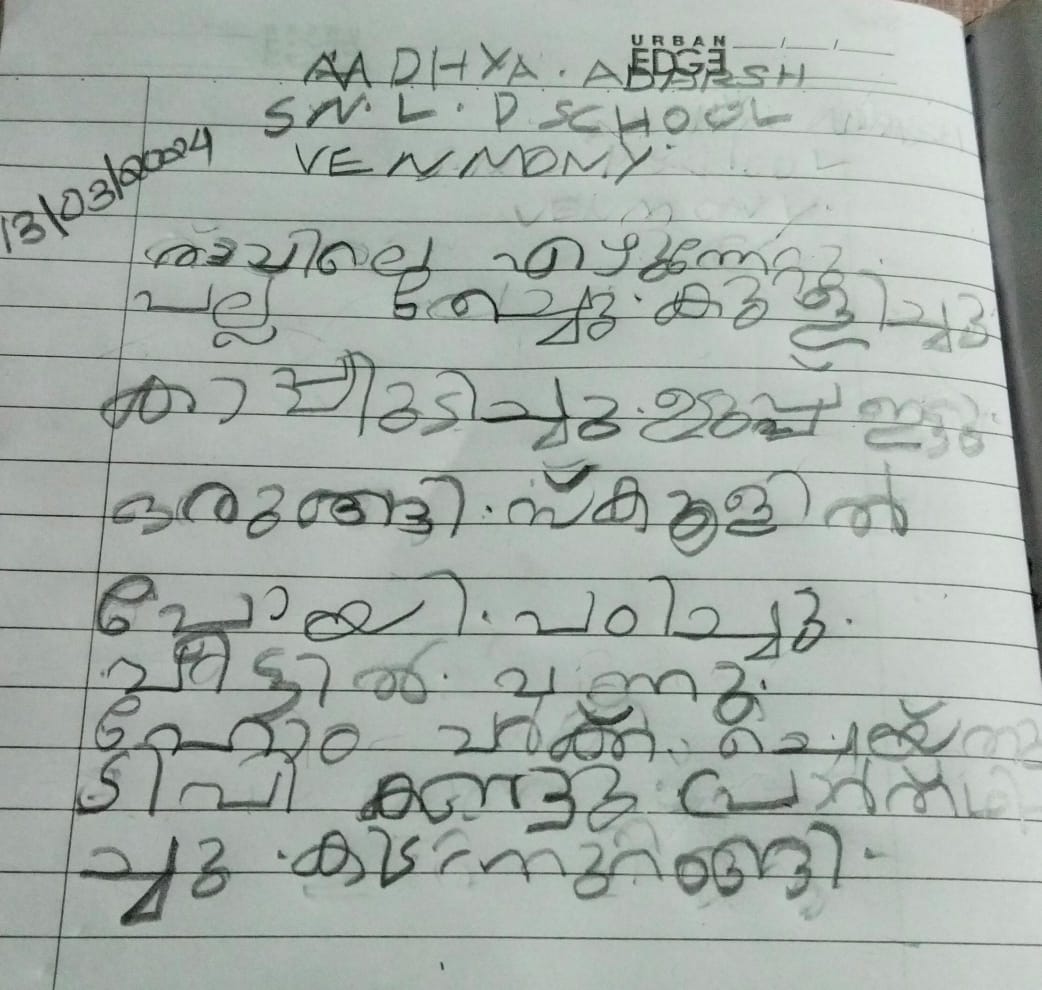 URBAN EDGE
AADHYA. ADARSH
S.N.L.P SCHOOL
VENMONY.
13/03/2024
രാവിലെ എഴുന്നേറ്റു.
പല്ലു തേച്ചു. കുളിച്ചു
കാപ്പി കുടിച്ചു. ഉടുപ്പ് ഇട്ടു.
ഒരുങ്ങി. സ്കൂളിൽ
പോയി. പഠിച്ചു.
വീട്ടിൽ. വന്നു.
ഹോം വർക്ക്. ചെയ്തു
ടിവി കണ്ടു പ്രാർത്ഥി
ച്ചു. കിടന്നുറങ്ങി.